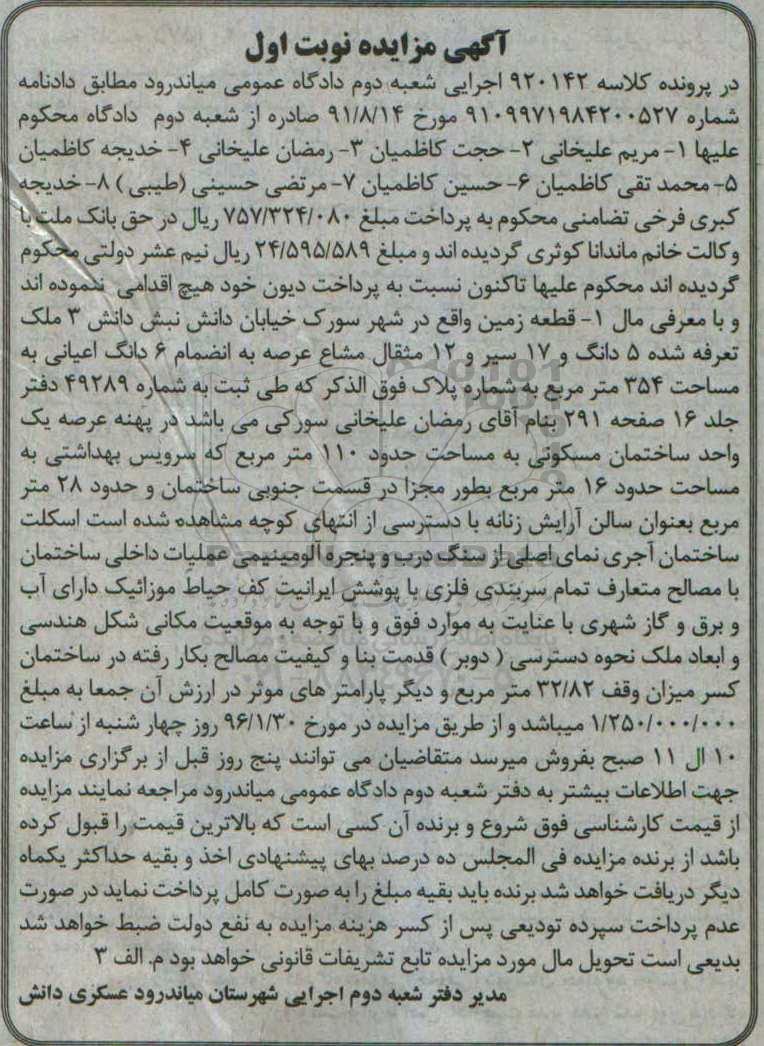 آگهی مزایده نوبت اول
در پرونده کلاسه ۹۲۰۱۴۲ اجرایی شعبه دوم دادگاه عمومی میاندرود مطابق دادنامه
شماره ۹۱۰۹۹۷۱۹۸۴۲۰۰۵۲۷ مورخ ۹۱/۸/۱۴ صادره از شعبه دوم دادگاه محکوم
علیها ۱- مریم علیخانی ۲- حجت کاظمیان ۳- رمضان علیخانی ۴- خدیجه کاظمیان
۵- محمد تقی کاظمیان ۶- حسین کاظمیان ۷- مرتضی حسینی (طیبی) ۸- خدیجه
کبری فرخی تضامنی محکوم به پرداخت مبلغ ۷۵۷/۳۲۴/۰۸۰ ریال در حق بانک ملت با
وکالت خانم ماندانا کوثری گردیده اند و مبلغ ۲۴/۵۹۵/۵۸۹ ریال نیم عشر دولتی محکوم
گردیده اند محکوم علیها تاکنون نسبت به پرداخت دیون خود هیچ اقدامی ننموده اند
و با معرفی مال ۱- قطعه زمین واقع در شهر سورک خیابان دانش نبش دانش ۳ ملک
تعرفه شده ۵ دانگ و ۱۷ سیر و ۱۲ مثقال مشاع عرصه به انضمام ۶ دانگ اعیانی به
مساحت ۳۵۴ متر مربع به شماره پلاک فوق الذکر که طی ثبت به شماره ۴۹۲۸۹ دفتر
جلد ۱۶ صفحه ۲۹۱ بنام آقای رمضان علیخانی سورکی می باشد در پهنه عرصه یک
واحد ساختمان مسکونی به مساحت حدود ۱۱۰ متر مربع که سرویس بهداشتی به
مساحت حدود ۱۶ متر مربع بطور مجزا در قسمت جنوبی ساختمان و حدود ۲۸ متر
مربع بعنوان سالن آرایش زنانه با دسترسی از انتهای کوچه مشاهده شده است اسکلت
ساختمان آجری نمای اصلی از سنگ درب و پنجره آلومینیمی عملیات داخلی ساختمان
با مصالح متعارف تمام سربندی فلزی با پوشش ایرانیت کف حیاط موزائیک دارای آب
و برق و گاز شهری با عنایت به موارد فوق و با توجه به موقعیت مکانی شکل هندسی
و ابعاد ملک نحوه دسترسی (دوبر) قدمت بنا و کیفیت مصالح بکار رفته در ساختمان
کسر میزان وقف ۳۲/۸۲ متر مربع و دیگر پارامتر های موثر در ارزش آن جمعا به مبلغ
۱/۲۵۰/۰۰۰/۰۰۰ میباشد و از طریق مزایده در مورخ ۹۶/۱/۳۰ روز چهار شنبه از ساعت
۱۰ ال ۱۱ صبح بفروش میرسد متقاضیان می توانند پنج روز قبل از برگزاری مزایده
جهت اطلاعات بیشتر به دفتر شعبه دوم دادگاه عمومی میاندرود مراجعه نمایند مزایده
از قیمت کارشناسی فوق شروع و برنده آن کسی است که بالاترین قیمت را قبول کرده
باشد از برنده مزایده فی المجلس ده درصد بهای پیشنهادی اخذ و بقیه حداکثر یکماه
دیگر دریافت خواهد شد برنده باید بقیه مبلغ را به صورت کامل پرداخت نماید در صورت
عدم پرداخت سپرده تودیعی پس از کسر هزینه مزایده به نفع دولت ضبط خواهد شد
بدیعی است تحویل مال مورد مزایده تابع تشریفات قانونی خواهد بود م. الف ۳
مدیر دفتر شعبه دوم اجرایی شهرستان میاندرود عسکری دانش